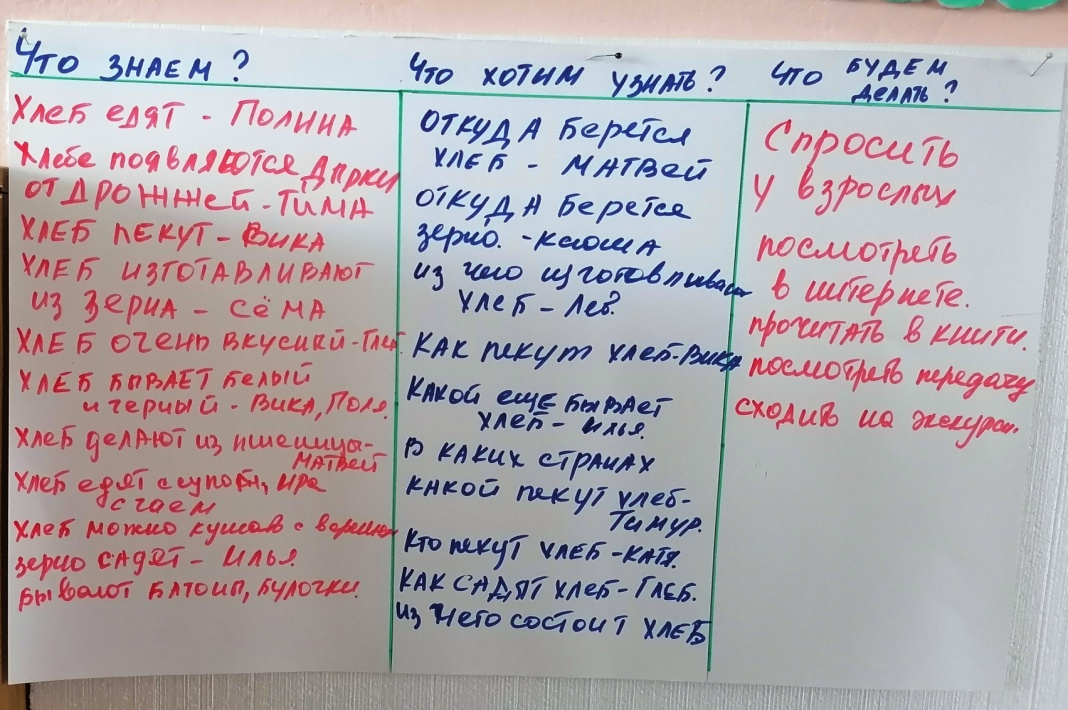 Что знаем?
Хлеб едят - Полина
Хлебе появляются дырки
от дрожжей - Тима
Хлеб пекут - Вика
Хлеб изготавливают
из зерна - Сёма
Хлеб очень вкусный - Глеб.
Хлеб бывает белый
и черный - Вика, Поля.
Хлеб делают из пшеницы -
Матвей
Хлеб едят с супом, Ира
с чаем
Хлеб можно кушать с
зерно садят - Илья.
бывают батоны, булочки.
Что хотим узнать?
Откуда берется
хлеб - Матвей
Откуда берется
зерно. - Ксюша
из чего изготавливают
хлеб - Лев.
Как пекут хлеб - Вика
Какой еще бывает
хлеб - Илья.
В каких странах
какой пекут хлеб -
Тимур.
Кто пекут хлеб - Катя.
Как садят хлеб - Глеб.
из чего состоит хлеб
Что будем
делать?
Спросить
у взрослых
посмотреть
в интернете.
прочитать в книги.
посмотреть передачу
сходить на экскурси.